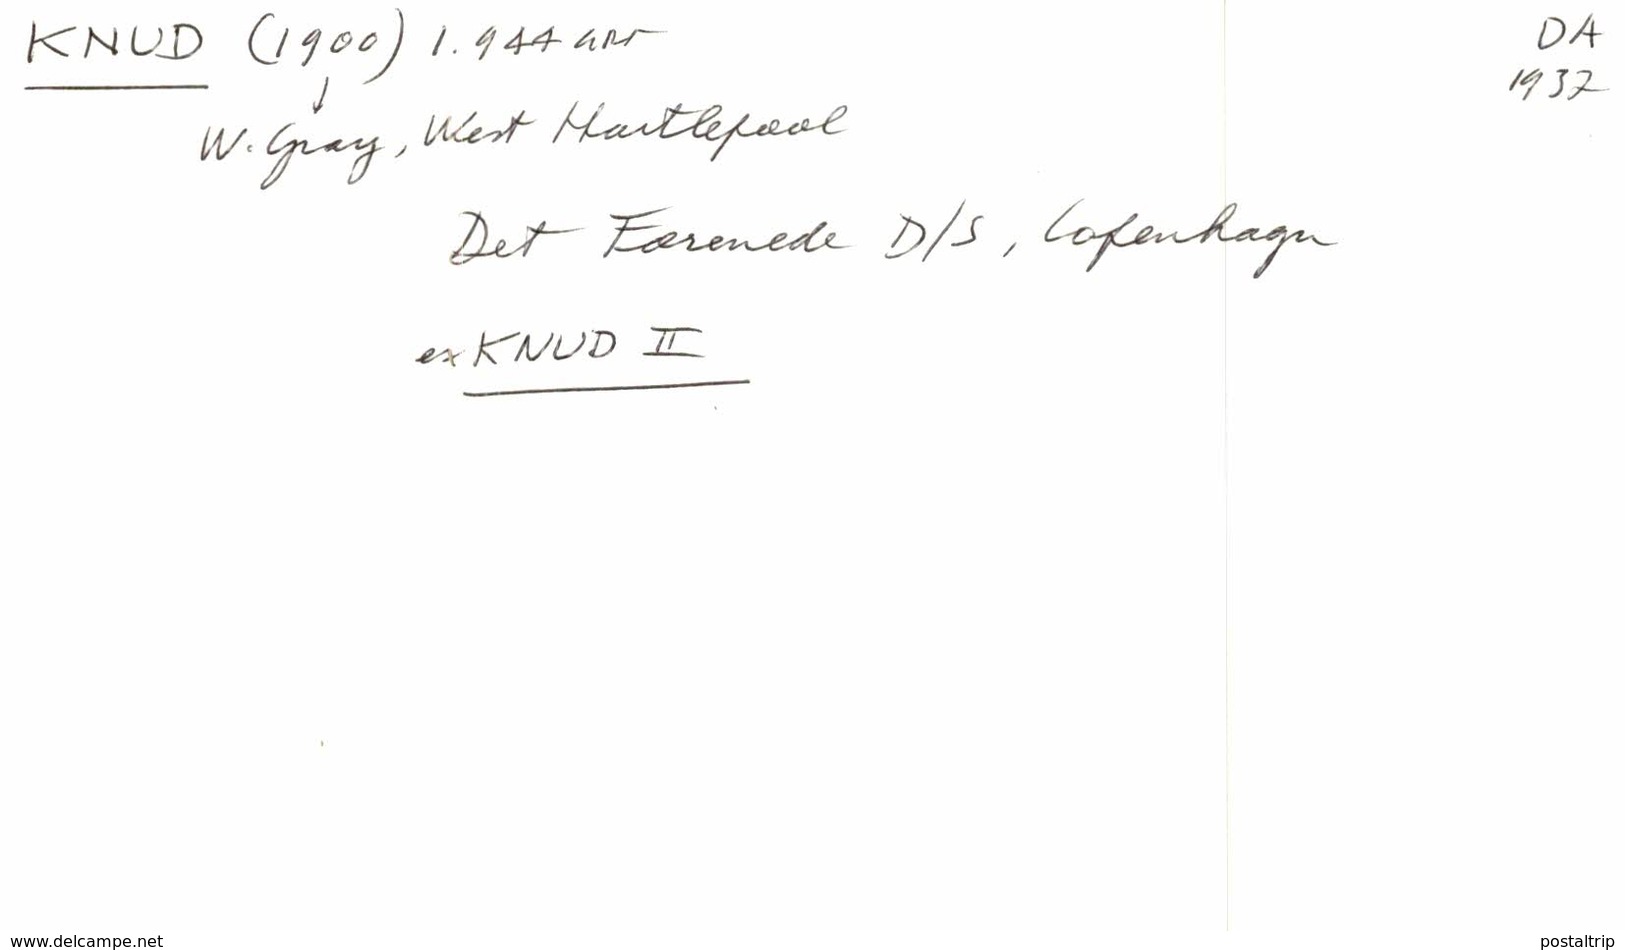 KNUD (1900) 1.944 GRT
DA
1932
↓
W. Gray, West Hartlepool
Det Forenede D/S, Copenhagen
ex KNUD II
www.delcampe.net
postaltrip